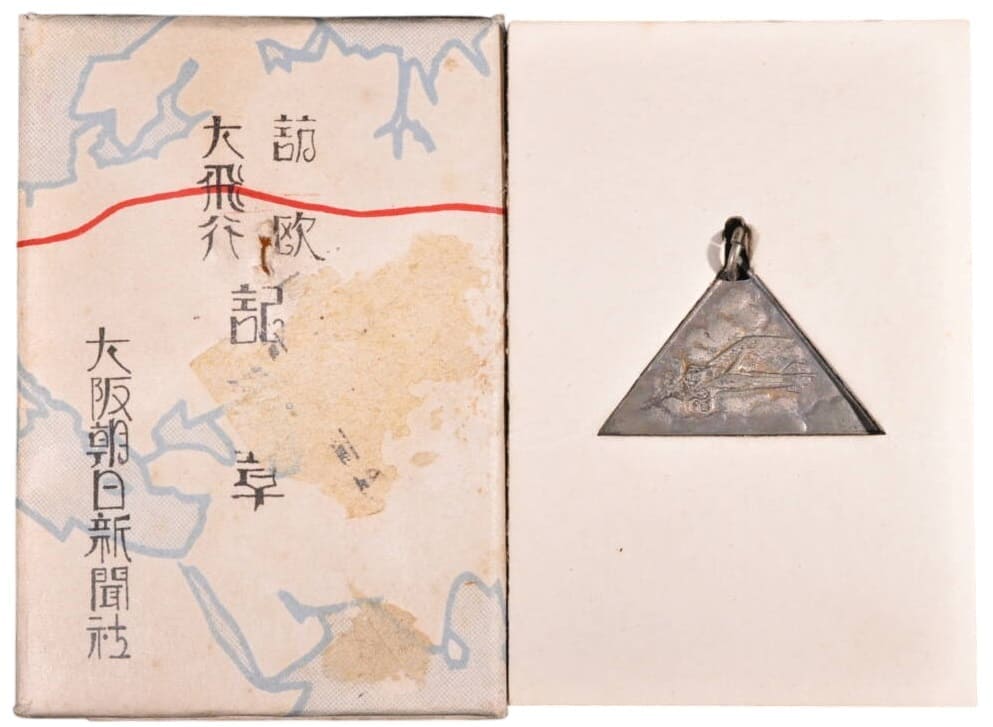 訪欧
大飛行
記章
大阪朝日新聞社